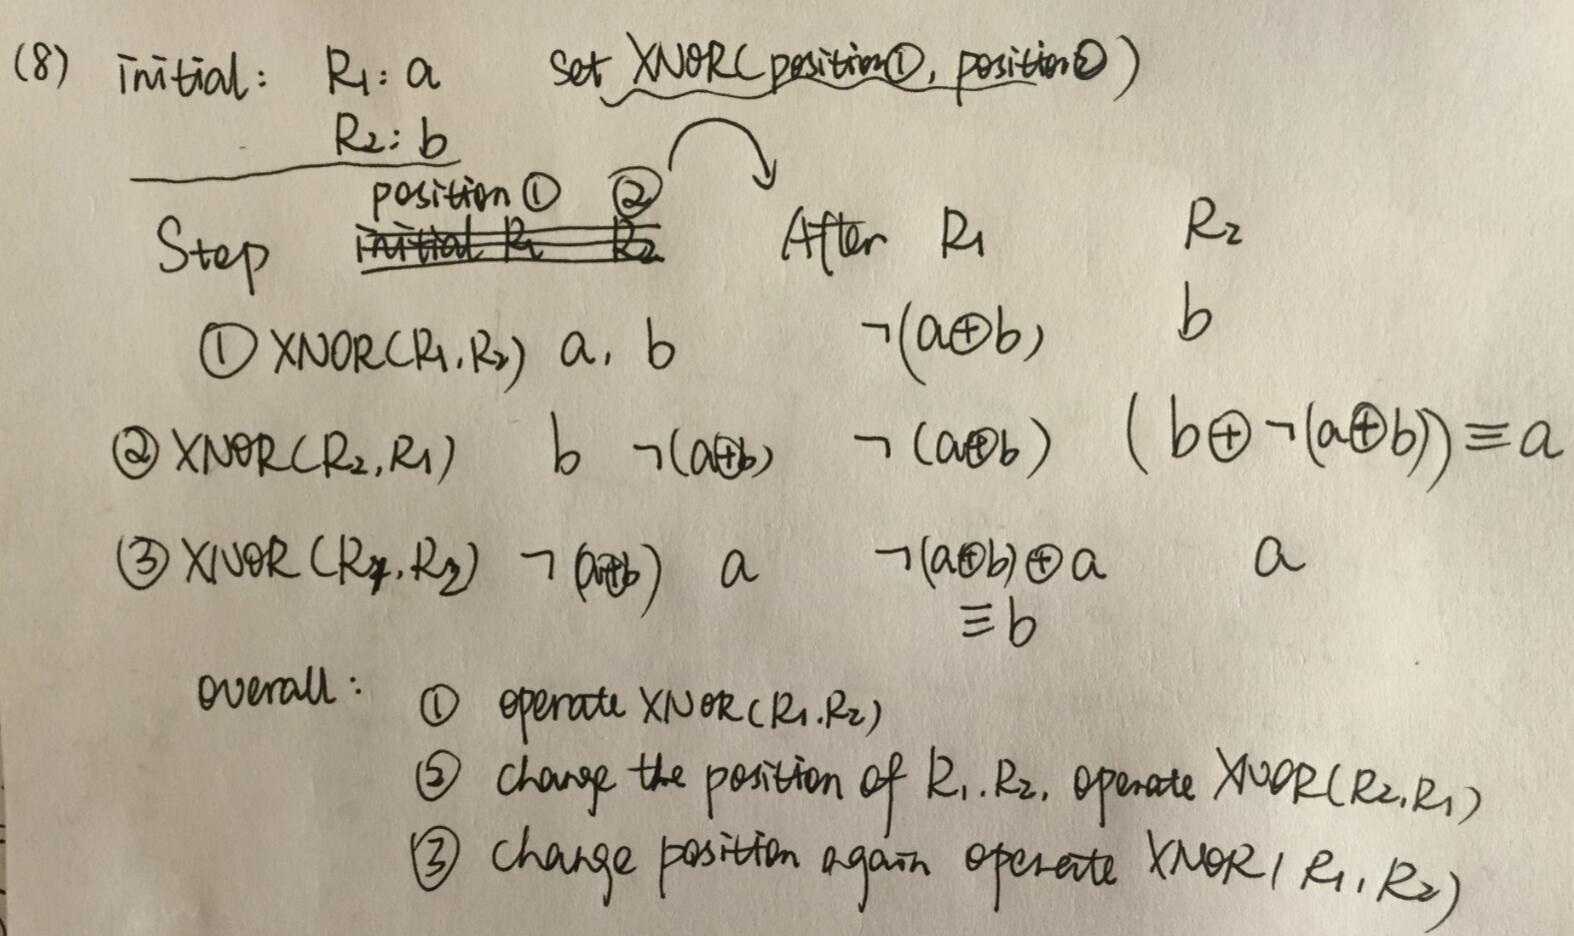 (8) initial: R₁: a set XNOR(position①, position②)
R₂: b
position ① ②
Step initial R₁ R₂ After R₁ R₂
① XNOR(R₁,R₂) a, b ¬(a⊕b) b
② XNOR(R₂,R₁) b ¬(a⊕b) ¬(a⊕b) (b⊕¬(a⊕b))≡a
③ XNOR(R₁,R₂) ¬(a⊕b) a ¬(a⊕b)⊕a a
≡b
overall: ① operate XNOR(R₁.R₂)
② change the position of R₁.R₂. operate XNOR(R₂,R₁)
③ change position again operate XNOR(R₁,R₂)